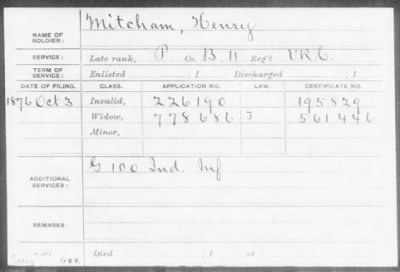 NAME OF SOLDIER: Mitcham, Henry
SERVICE: Late rank, P Co. B. 11 Reg't V.R.C.
TERM OF SERVICE: Enlisted , 1 Discharged , 1
DATE OF FILING. CLASS. APPLICATION NO. LAW. CERTIFICATE NO.
1876 Oct 3 Invalid, 226190 195829
Widow, 778686 J 561446
Minor,
ADDITIONAL SERVICES: G 100 Ind. Inf
REMARKS:
Died , 1 , at